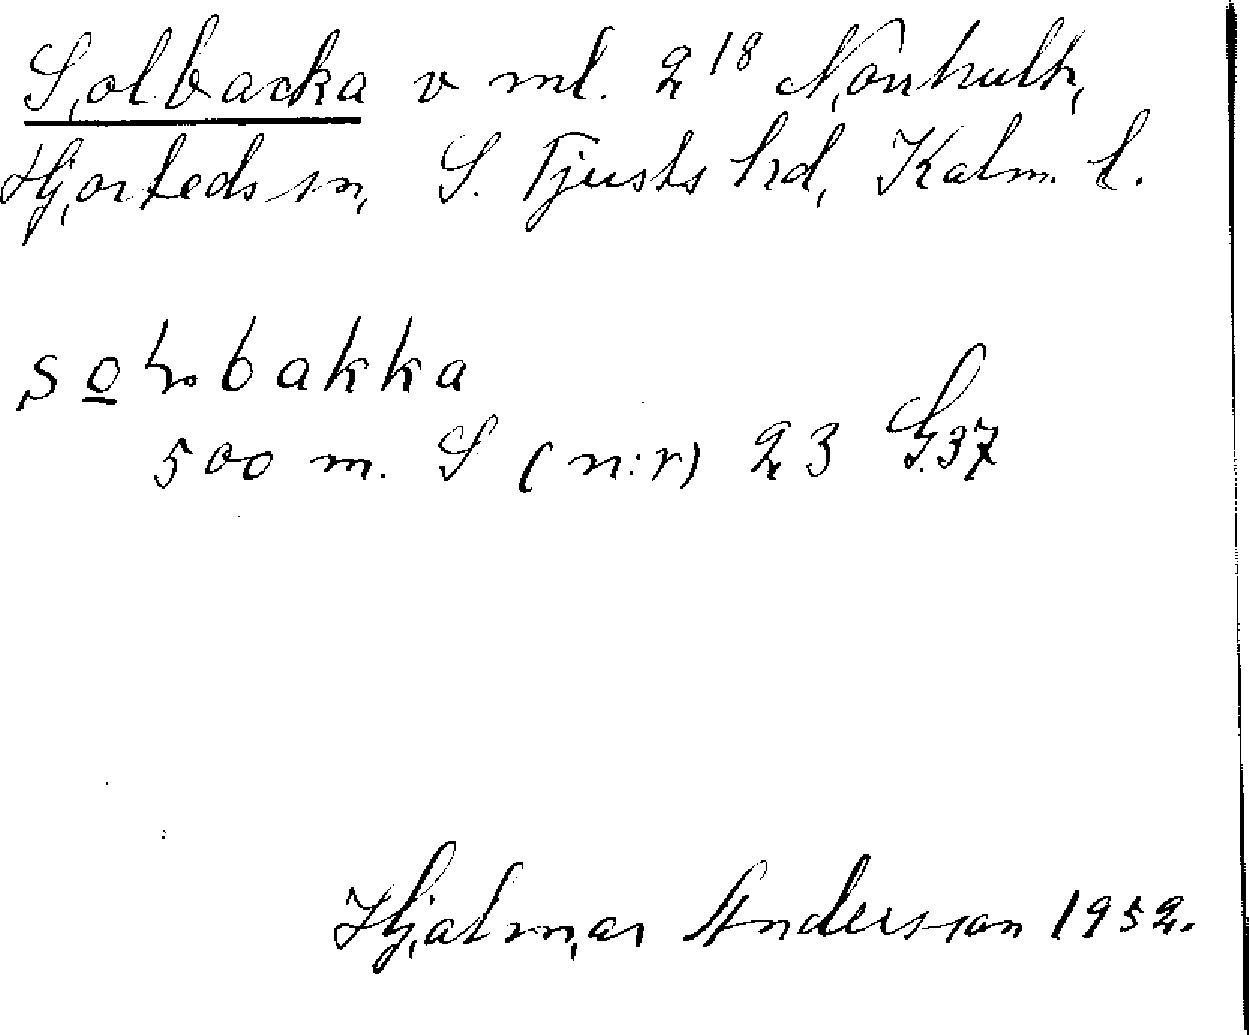 Solbacka v ml. 2¹⁸ Norrhult,
Hjorteds sn, S. Tjusts hd, Kalm. l.
bakka
500 m. S (n:r) 23 G.37
Hjalmar Andersson 1952.